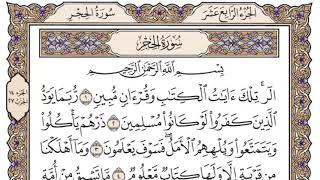 الجزء الرابع عشر
سورة الحجر
سورة الحجر
بسم الله الرحمن الرحيم
الٓر تِلْكَ ءَايَٰتُ ٱلْكِتَٰبِ وَقُرْءَانٍ مُّبِينٍ ١ رُّبَمَا يَوَدُّ
ٱلَّذِينَ كَفَرُوا۟ لَوْ كَانُوا۟ مُسْلِمِينَ ٢ ذَرْهُمْ يَأْكُلُوا۟
وَيَتَمَتَّعُوا۟ وَيُلْهِهِمُ ٱلْأَمَلُ فَسَوْفَ يَعْلَمُونَ ٣ وَمَآ أَهْلَكْنَا
مِن قَرْيَةٍ إِلَّا وَلَهَا كِتَابٌ مَّعْلُومٌ ٤ مَّا تَسْبِقُ مِنْ أُمَّةٍ